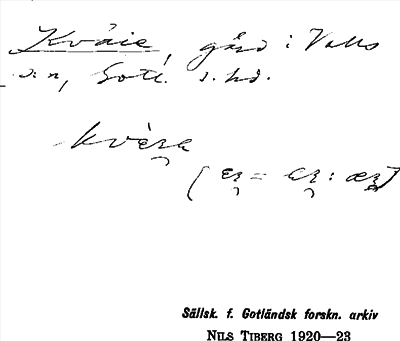 Kväie, gård i Valls
s:n, Gotl. s. hd.
kvèra
Sällsk. f. Gotländsk forskn. arkiv
NILS TIBERG 1920—23